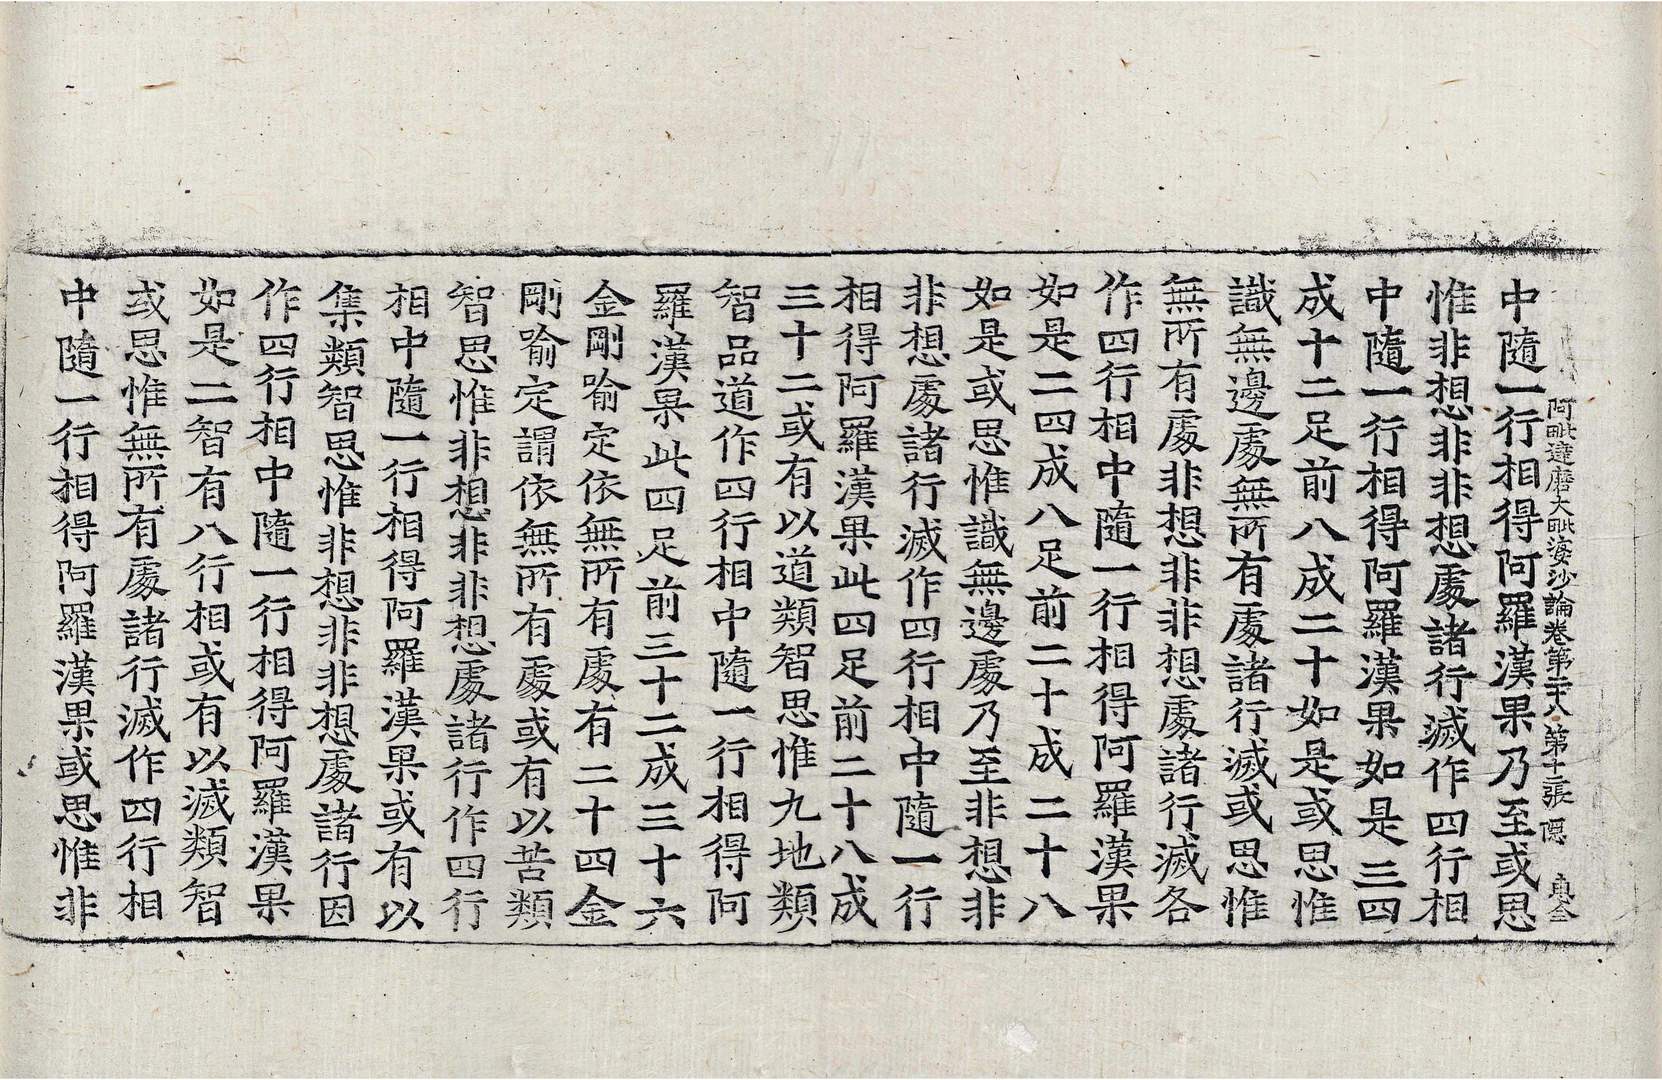 阿毗達磨大毗婆沙論卷第二十八 第十張 隱
中隨一行相得阿羅漢果乃至或思
惟非想非非想處諸行滅作四行相
中隨一行相得阿羅漢果如是三四
成十二足前八成二十如是或思惟
識無邊處無所有處諸行滅或思惟
無所有處非想非非想處諸行滅各
作四行相中隨一行相得阿羅漢果
如是二四成八足前二十成二十八
如是或思惟識無邊處乃至非想非
非想處諸行滅作四行相中隨一行
相得阿羅漢果此四足前二十八成
三十二或有以道類智思惟九地類
智品道作四行相中隨一行相得阿
羅漢果此四足前三十二成三十六
金剛喻定依無所有處有二十四金
剛喻定謂依無所有處或有以苦類
智思惟非想非非想處諸行作四行
相中隨一行相得阿羅漢果或有以
集類智思惟非想非非想處諸行因
作四行相中隨一行相得阿羅漢果
如是二智有八行相或有以滅類智
或思惟無所有處諸行滅作四行相
中隨一行相得阿羅漢果或思惟非